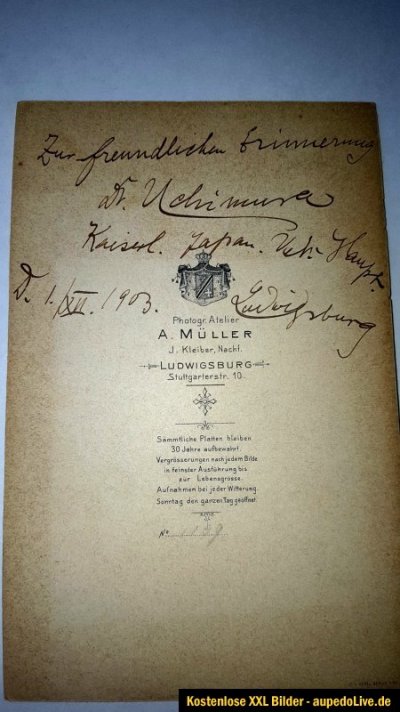 Zur freundlichen Erinnerung
Dr. Uchimura
Kaiserl. Japan. Haupt
D. 1./XII. 1903. Ludwigsburg
Photogr. Atelier
A. MÜLLER
J. Kleiber, Nachf.
LUDWIGSBURG
Stuttgarterstr. 10.
Sämmtliche Platten bleiben
30 Jahre aufbewahrt.
Vergrösserungen nach jedem Bilde
in feinster Ausführung bis
zur Lebensgrösse.
Aufnahmen bei jeder Witterung.
Sonntag den ganzen Tag geöffnet.
No
Kostenlose XXL Bilder - aupedoLive.de